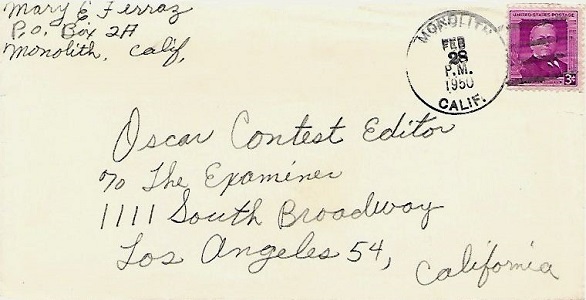 Mary E Ferraz
P.O. Box 2A
Monolith, Calif.
MONOLITH
FEB
28
P.M.
1950
CALIF.
UNITED STATES POSTAGE
3¢
Oscar Contest Editor
℅ The Examiner
1111 South Broadway
Los Angeles 54,
California